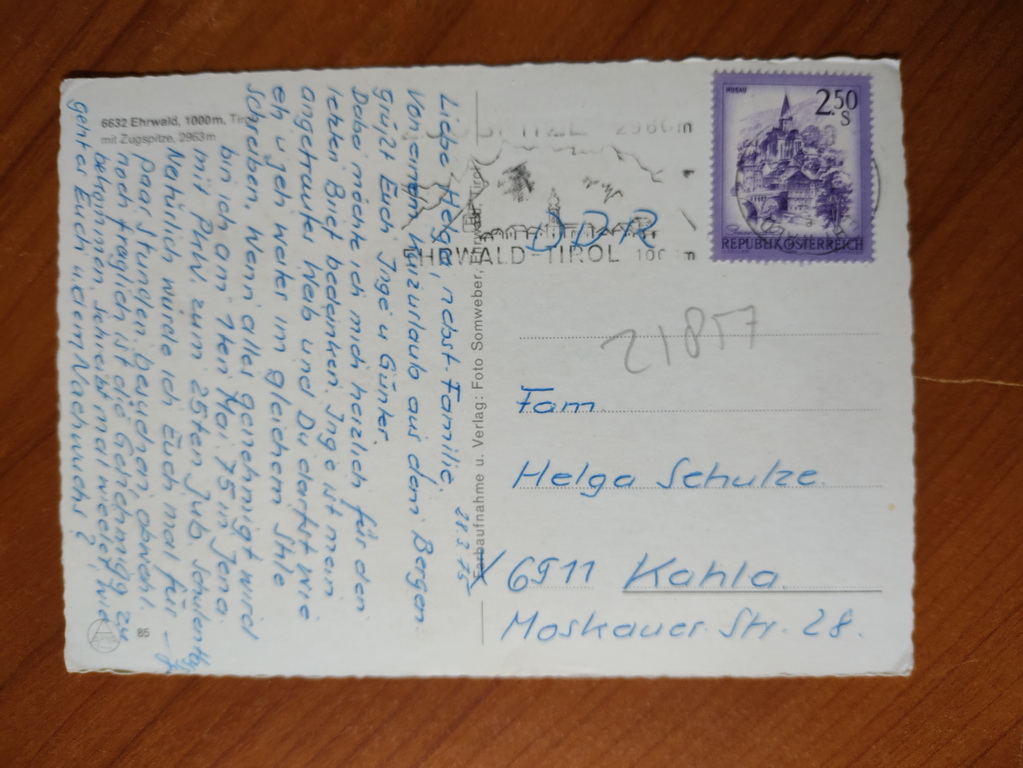 6632 Ehrwald, 1000m, Tirol
mit Zugspitze, 2963m
21.3.75
Liebe Helga, nebst Familie.
Von einem Kurzurlaub aus den Bergen
grüßt Euch Inge u Günter.
Dabei möchte ich mich herzlich für den
letzten Brief bedanken. Inge ist mein
angetrauter Weib und Du darfst wie
eh u jeh weiter im gleichem Stile
schreiben. Wenn alles genehmigt wird
bin ich am 7ten Mai 75 in Jena
mit PKW zum 25sten Jub. Schulentlg
Natürlich würde ich Euch mal für
paar Stunden besuchen, obwohl
noch fraglich ist die Genehmigg zu
bekommen. Schreibt mal wieder, wie
geht es Euch u dem Nachwuchs?
85
Farbaufnahme u. Verlag: Foto Somweber,
2960m
EHRWALD-TIROL
DDR
MURAU
2.50
S
REPUBLIK ÖSTERREICH
21857
Fam.
Helga Schulze.
X 6911 Kahla.
Moskauer Str. 28.